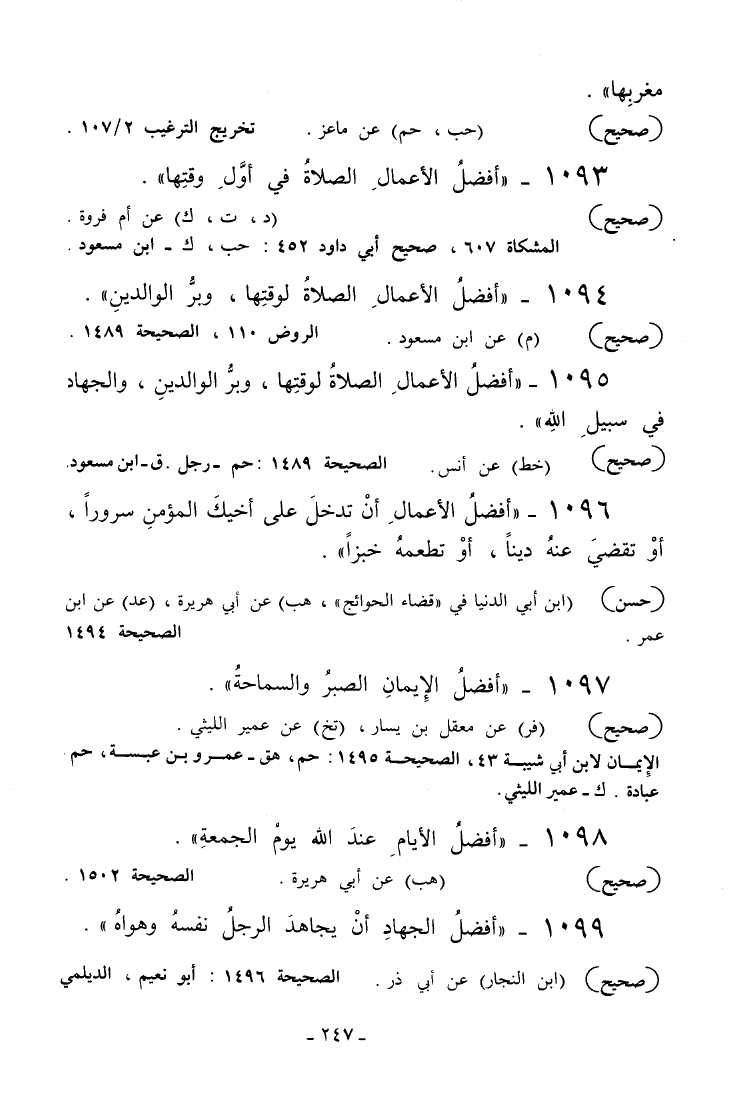 مغربِها» .
(صحيح) (حب ، حم) عن ماعز . تخريج الترغيب ١٠٧/٢ .
١٠٩٣ - «أفضلُ الأعمالِ الصلاةُ في أوَّلِ وقتِها» .
(صحيح) (د ، ت ، ك) عن أم فروة .
المشكاة ٦٠٧ ، صحيح أبي داود ٤٥٢ : حب ، ك - ابن مسعود .
١٠٩٤ - «أفضلُ الأعمالِ الصلاةُ لوقتِها ، وبرُّ الوالدينِ» .
(صحيح) (م) عن ابن مسعود . الروض ١١٠ ، الصحيحة ١٤٨٩ .
١٠٩٥ - «أفضلُ الأعمالِ الصلاةُ لوقتِها ، وبرُّ الوالدينِ ، والجهاد
في سبيلِ اللهِ» .
(صحيح) (خط) عن أنس. الصحيحة ١٤٨٩ :حم -رجل .ق-ابن مسعود.
١٠٩٦ - «أفضلُ الأعمالِ أنْ تدخلَ على أخيكَ المؤمنِ سروراً ،
أوْ تقضيَ عنهُ ديناً ، أوْ تطعمهُ خبزاً» .
(حسن) (ابن أبي الدنيا في «قضاء الحوائج» ، هب) عن أبي هريرة ، (عد) عن ابن
عمر . الصحيحة ١٤٩٤
١٠٩٧ - «أفضلُ الإِيمانِ الصبرُ والسماحةُ» .
(صحيح) (فر) عن معقل بن يسار ، (تخ) عن عمير الليثي .
الإِيمان لابن أبي شيبة ٤٣ ، الصحيحة ١٤٩٥ : حم ، هق - عمرو بن عبسة ، حم
عبادة . ك - عمير الليثي.
١٠٩٨ - «أفضلُ الأيامِ عندَ الله يومُ الجمعةِ» .
(صحيح) (هب) عن أبي هريرة . الصحيحة ١٥٠٢ .
١٠٩٩ - «أفضلُ الجهادِ أنْ يجاهدَ الرجلُ نفسهُ وهواهُ» .
(صحيح) (ابن النجار) عن أبي ذر . الصحيحة ١٤٩٦ : أبو نعيم ، الديلمي
- ٢٤٧ -